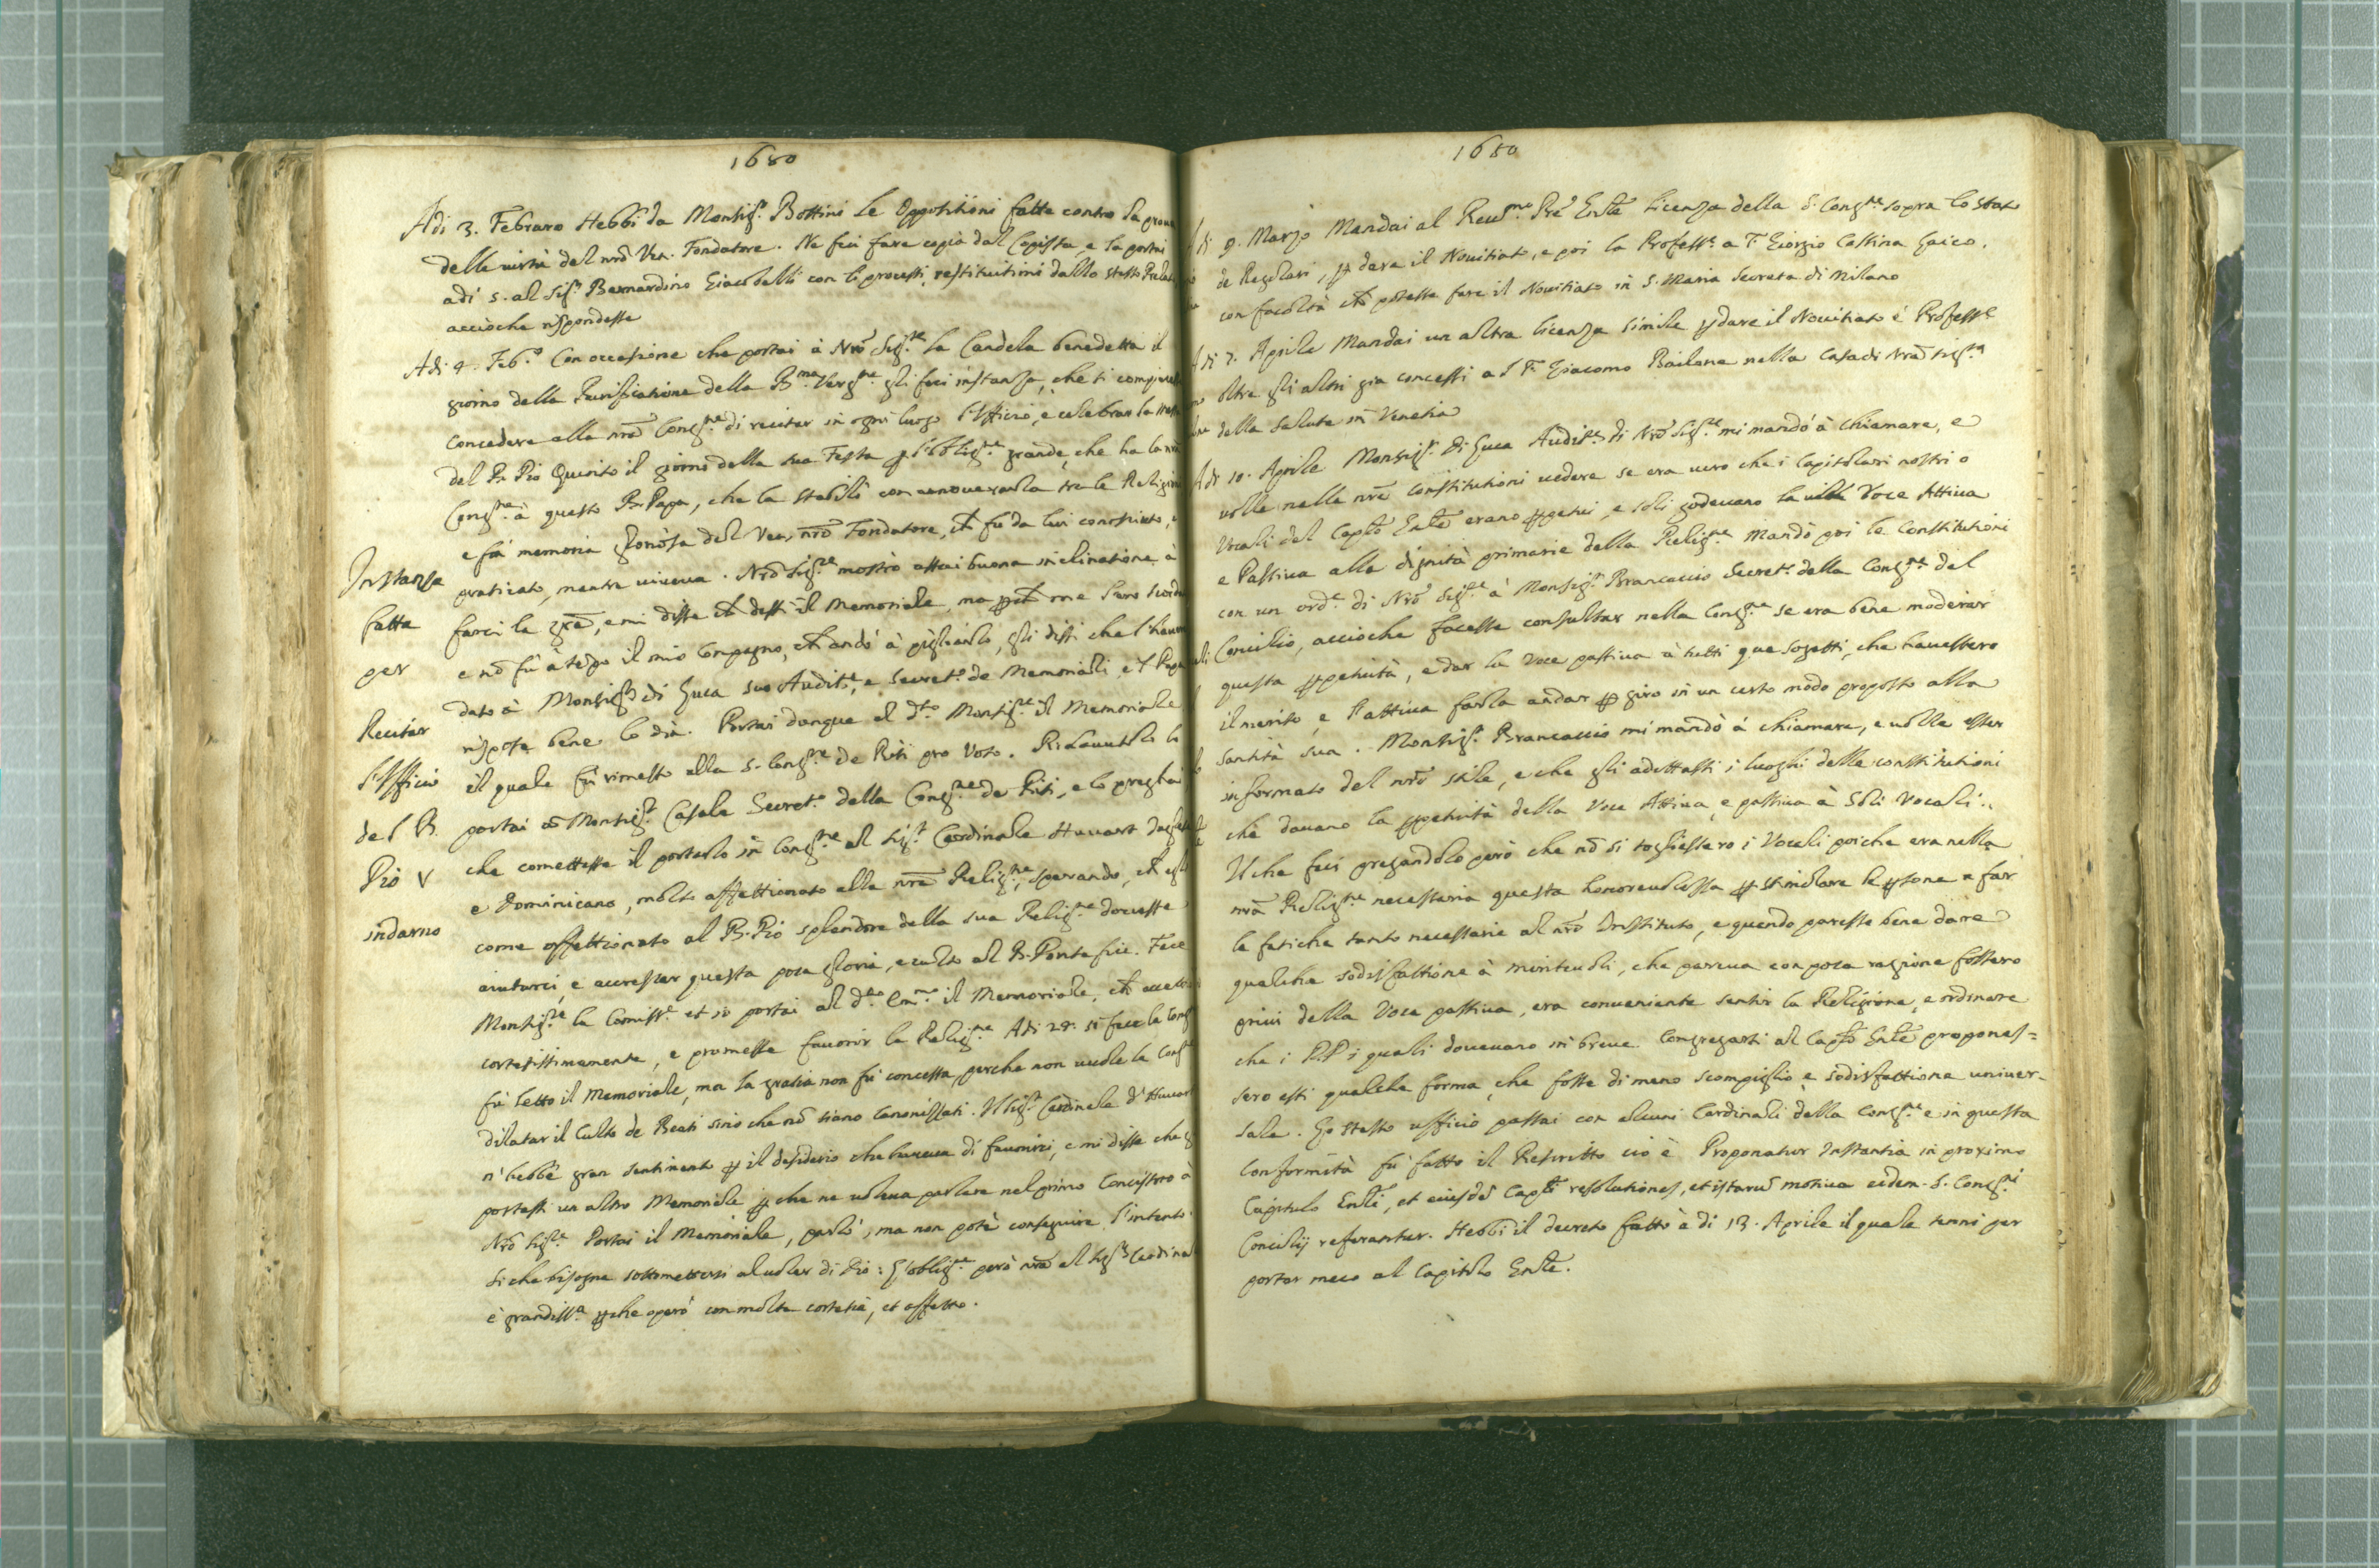 1680
Adi 3. Febraro Hebbi da Monsig.r Bottini le Oppositioni fatte contro la
delle virtù del nrō Ven. Fondatore. Ne feci fare copia dal Copista, e la portai
adi 5. al Sig.r Bernardino Giacobelli con li processi, restituitimi dallo stesso
accioche rispondesse
Adi 4. Feb.o Con occasione che portai à Nrō Sig.re la Candela benedetta il
giorno della Purificatione della B.ma Verg.ne gli feci instanza, che si
concedere alla nrā Cong.ne di recitar in ogni luogo l'Officio, e celebrar la
del B. Pio Quinto il giorno della sua Festa ꝑ l'oblig.ne grande, che ha la
Cong.ne à questo B. Papa, che la stabilì con annoverarla tra le
e fà memoria gloriosa del Ven. nrō Fondatore, ch̄ fù da lui conosciuto,
Instanza
fatta
per
Recitar
l'Officio
del B.
Pio V
indarno
praticato, mentre viveva. Nrō Sig.re mostrò assai buona inclinatione à
farci la grā, e mi disse ch̄ dessi il Memoriale, ma ꝑch̄ me l'ero
e nō fù à tēpo il mio Compagno, ch̄ andò à pigliarlo, gli dissi che
dato à Monsig.r di Luca suo Audit.e, e Secret.o de Memoriali, e'l Papa
rispose bene lo dia. Portai donque al d.to Monsig.re il Memoriale
il quale fù rimesso alla S. Cong.ne de Riti pro Voto. Rihavutolo lo
portai à Monsig.r Casale Secret.o della Cong.ne de Riti, e lo preghai
che comettesse il portarlo in Cong.ne al Sig.r Cardinale Huuart
e Dominicano, molto affettionato alla nrā Relig.ne, sperando, ch̄
come affettionato al B. Pio splendore della sua Relig.ne dovesse
aiutarci, e accrescer questa poca gloria, e culto al B. Pontefice. Fece
Monsig.re la Comiss.e et io portai al d.to Em.mo il Memoriale, ch̄
cortesissimamente, e promesse favorir la Relig.ne Adi 28. si fece la
fù letto il Memoriale, ma la gratia non fù concessa, perche non vuole la
dilatar il Culto de Beati sino che nō siano Canonizati. Il Sig.r Cardinale d'
n'hebbe gran sentimento ꝑ il desiderio che haveva di favorirci, e mi disse che
portassi un altro Memoriale ꝑche ne voleva parlare nel primo Concistoro à
Nrō Sig.re Portai il Memoriale, parlò, ma non potè conseguire l'intento.
Si che bisogna sottomettersi al voler di Dio: L'oblig.ne però nrā al Sig.r
è grandiss.a ꝑche operò con molta cortesia, et affetto.
1680
Adi 9. Marzo Mandai al Reud.mo Prē Gnlē licenza della S. Cong.ne sopra lo stato
de Regolari, ꝑ dare il Novitiato, e poi la Profess.e a F. Giorgio Cassina Laico,
con facoltà ch̄ potesse fare il Novitiato in S. Maria Secreta di Milano
Adi 7. Aprile Mandai un altra licenza simile ꝑ dare il Novitiato è Profess.e
oltre gli altri gia concessi a F. Giacomo Bailone nella Casa di Nrā Sig.ra
della Salute in Venetia
Adi 10. Aprile Monsig.r di Luca Audit.e di Nrō Sig.re mi mandò à chiamare, e
volle nelle nrē constitutioni vedere se era vero che i Capitolari nostri o
Vocali del Capt̄o Gnlē erano ꝑpetui, e soli godevano la Voce Attiva
e Passiva alle dignità primarie della Relig.ne Mandò poi le Constitutioni
con un ord.e di Nrō Sig.re à Monsig.r Brancaccio Secret.o della Cong.ne del
Concilio, accioche facesse consultar nella Cong.ne se era bene moderar
questa ꝑpetuità, e dar la voce passiva à tutti que sogetti, che havessero
il merito, e l'attiva farla andar ꝑ giro in un certo modo proposto alla
santità sua. Monsig.r Brancaccio mi mandò à chiamare, e volle esser
informato del nrō stile, e che gli adittassi i luoghi delle constitutioni
che davano la ꝑpetuità della Voce Attiva, e passiva à Soli Vocali.
Il che feci pregandolo però che nō si togliessero i Vocali poiche era nella
nrā Relig.ne necessaria questa honorevolezza ꝑ stimolare le ꝑsone a far
le fatiche tanto necessarie al nrō Instituto, e quando paresse bene dare
qualche sodisfattione à meritevoli, che pareva con poca ragione fossero
privi della Voce passiva, era conveniente sentir la Religione, e ordinare
che i P.P. i quali dovevano in breve Congregarsi al Capt̄o Gnlē propones=
sero essi qualche forma, che fosse di meno scompiglio, e sodisfattione univer-
sale. Lo stesso ufficio passai con alcuni Cardinali della Cong.ne e in questa
conformità fù fatto il Rescritto cio è Proponatur Instantia in proximo
Capitulo Gnlī, et eiusdē Capt̄i resolutiones, et istarū motiva eidem S. Cong.ni
Concilij referantur. Hebbi il decreto fatto à di 13. Aprile il quale tenni per
portar meco al Capitolo Gnlē.